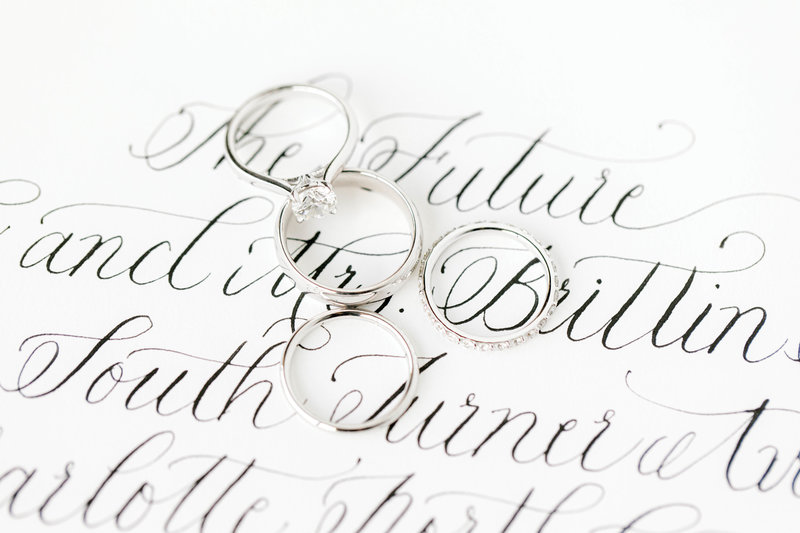 The Future
and Mrs. Brittin
South Turner
arlotte North